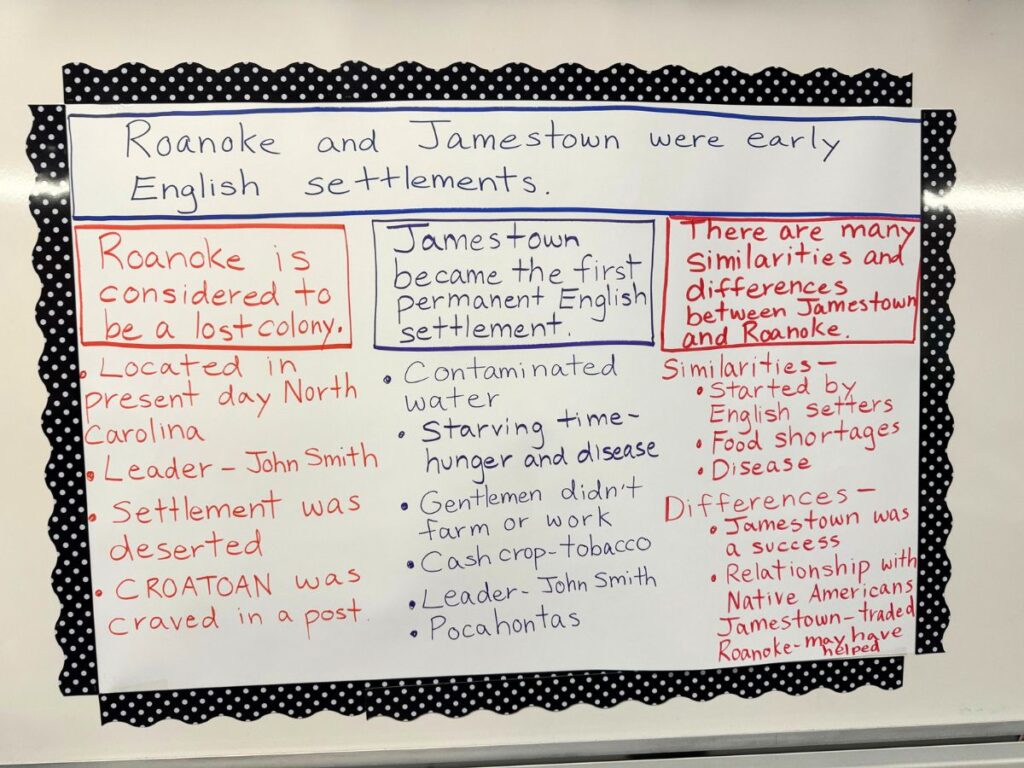 Roanoke and Jamestown were early
English settlements.
Roanoke is
considered to
be a lost colony.
• Located in
present day North
Carolina
• Leader - John Smith
• Settlement was
deserted
• CROATOAN was
craved in a post.
Jamestown
became the first
permanent English
settlement.
• Contaminated
water
• Starving time-
hunger and disease
• Gentlemen didn't
farm or work
• Cash crop-tobacco
• Leader- John Smith
• Pocahontas
There are many
similarities and
differences
between Jamestown
and Roanoke.
Similarities-
• Started by
English setters
• Food shortages
• Disease
Differences-
• Jamestown was
a success
• Relationship with
Native Americans
Jamestown-traded
Roanoke-may have
helped